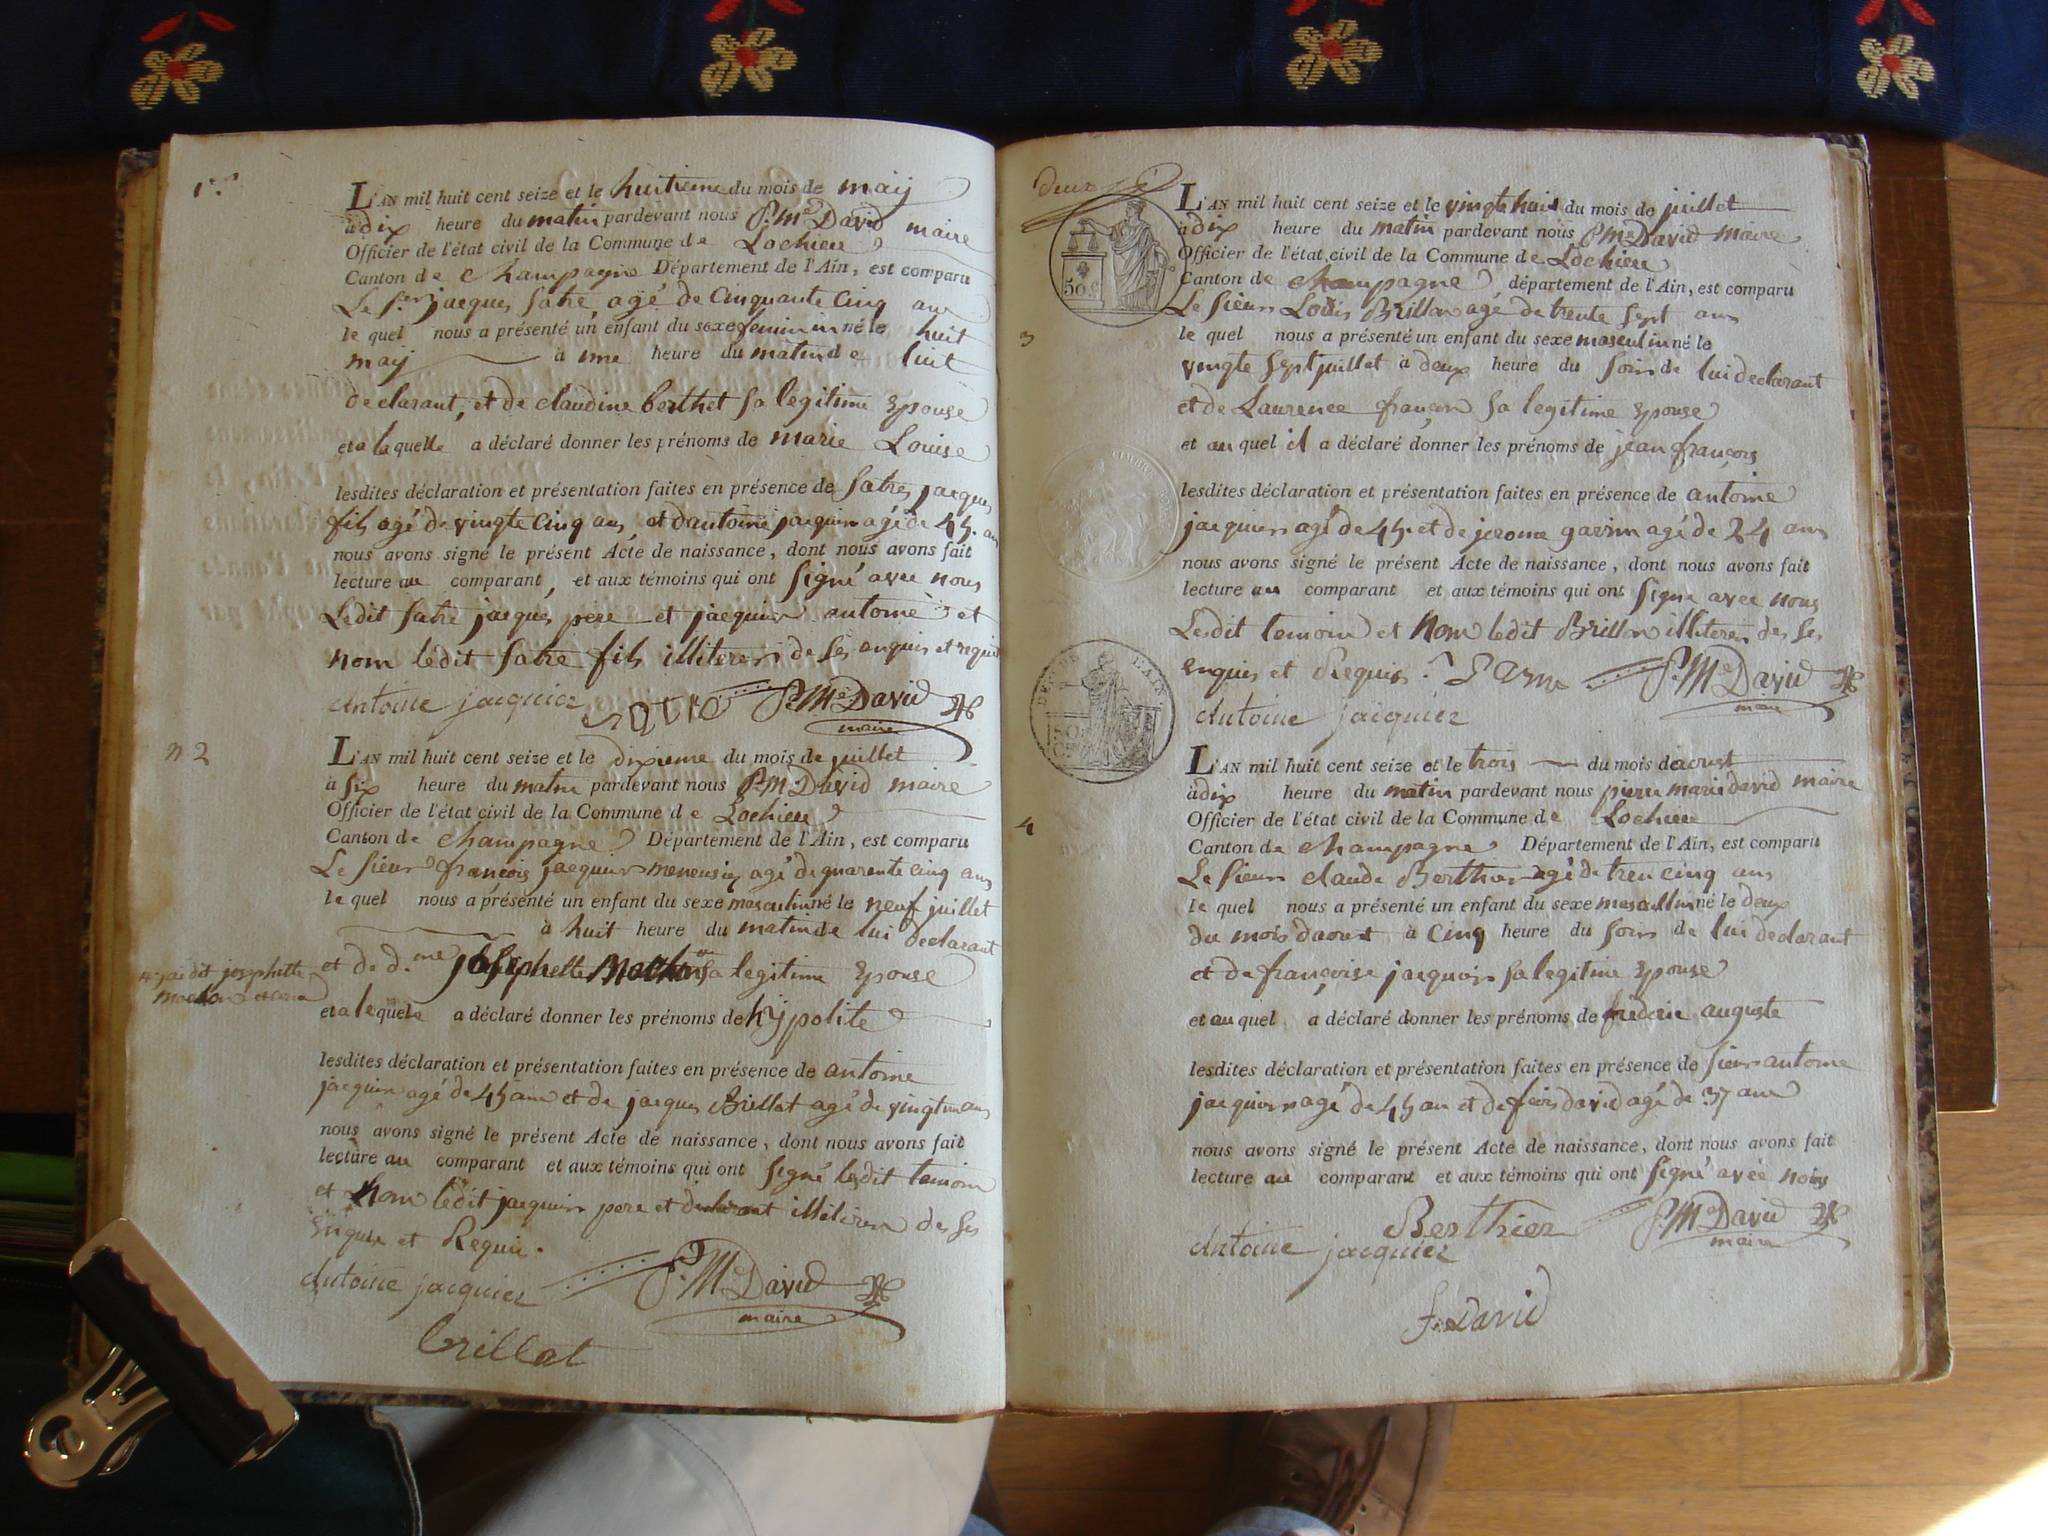 1er
L'AN mil huit cent seize et le huitieme du mois de maij
à dix heure du matin pardevant nous P. Mie David maire
Officier de l'état civil de la Commune de Lochieu
Canton de Champagne Département de l'Ain, est comparu
Le Sieur jacques Satre, agé de Cinquante Cinq ans
le quel nous a présenté un enfant du sexe feminin né le huit
maij à une heure du matin de luit
declarant, et de claudine berthet sa legitime Epouse
et a laquelle a déclaré donner les prénoms de marie Louise
lesdites déclaration et présentation faites en présence de Satre, jacques
fils agé de vingte cinq ans, et dantoine jacquier agé de 45. ans
nous avons signé le présent Acte de naissance, dont nous avons fait
lecture au comparant, et aux témoins qui ont signé avec nous
Ledit Satre jacques pere et jacquier antoine et
nom ledit Satre fils illiteres de ses enquis et requis
Antoine jacquier satre P. Mie David
maire
n 2
L'AN mil huit cent seize et le dixieme du mois de juillet
à six heure du matin pardevant nous P. M David maire
Officier de l'état civil de la Commune de Lochieu
Canton de Champagne Département de l'Ain, est comparu
Le Sieur françois jacquier meneusier agé de quarente cinq ans
le quel nous a présenté un enfant du sexe masculin né le neuf juillet
à huit heure du matin de lui declarant
et de dme josephette Mochon sa legitime Epouse
josephette
mochon
et a lequele a déclaré donner les prénoms de hÿpolite
lesdites déclaration et présentation faites en présence de antoine
jacquier agé de 45 ans et de jacques Brillat agé de vingt un ans
nous avons signé le présent Acte de naissance, dont nous avons fait
lecture au comparant et aux témoins qui ont signé lesdit temoin
et Nom ledit jacquier pere et declarant illiteres de ses
Enquis et Requis.
Antoine jacquier P. Mie David
maire
brillat
deux
50 c
L'AN mil huit cent seize et le vingte huit du mois de juillet
à dix heure du matin pardevant nous P Mie David maire
Officier de l'état civil de la Commune de Lochieu
Canton de Champagne département de l'Ain, est comparu
Le Sieur Louis Brillon agé de trente sept ans
3
le quel nous a présenté un enfant du sexe masculin né le
vingte Sept juillet à deux heure du soir de lui declarant
et de Laurence françon sa legitime Epouse
et au quel il a déclaré donner les prénoms de jean françois
lesdites déclaration et présentation faites en présence de antoine
jacquier agé de 45. et de jerome gavrin agé de 24 ans
nous avons signé le présent Acte de naissance, dont nous avons fait
lecture au comparant et aux témoins qui ont signe avec nous
Lesdit temoin et Nom ledit Brillon illiteres de ses
Enquis et Requis. P. Mie David
maire
Antoine jacquier
L'AN mil huit cent seize et le trois du mois d'aoust
à dix heure du matin pardevant nous pierre marie david maire
Officier de l'état civil de la Commune de Lochieu
4
Canton de Champagne Département de l'Ain, est comparu
Le Sieur claude Berthier agé de tren cinq ans
le quel nous a présenté un enfant du sexe masculin né le deux
du mois d'aoust à cinq heure du soir de lui declarant
et de françoise jacquier sa legitime Epouse
et au quel a déclaré donner les prénoms de frederic auguste
lesdites déclaration et présentation faites en présence de sieur antoine
jacquier agé de 45 an et de fcois david agé de 37 ans
nous avons signé le présent Acte de naissance, dont nous avons fait
lecture au comparant et aux témoins qui ont signé avec nous
Berthier P. Mie David
maire
Antoine jacquier
f. David